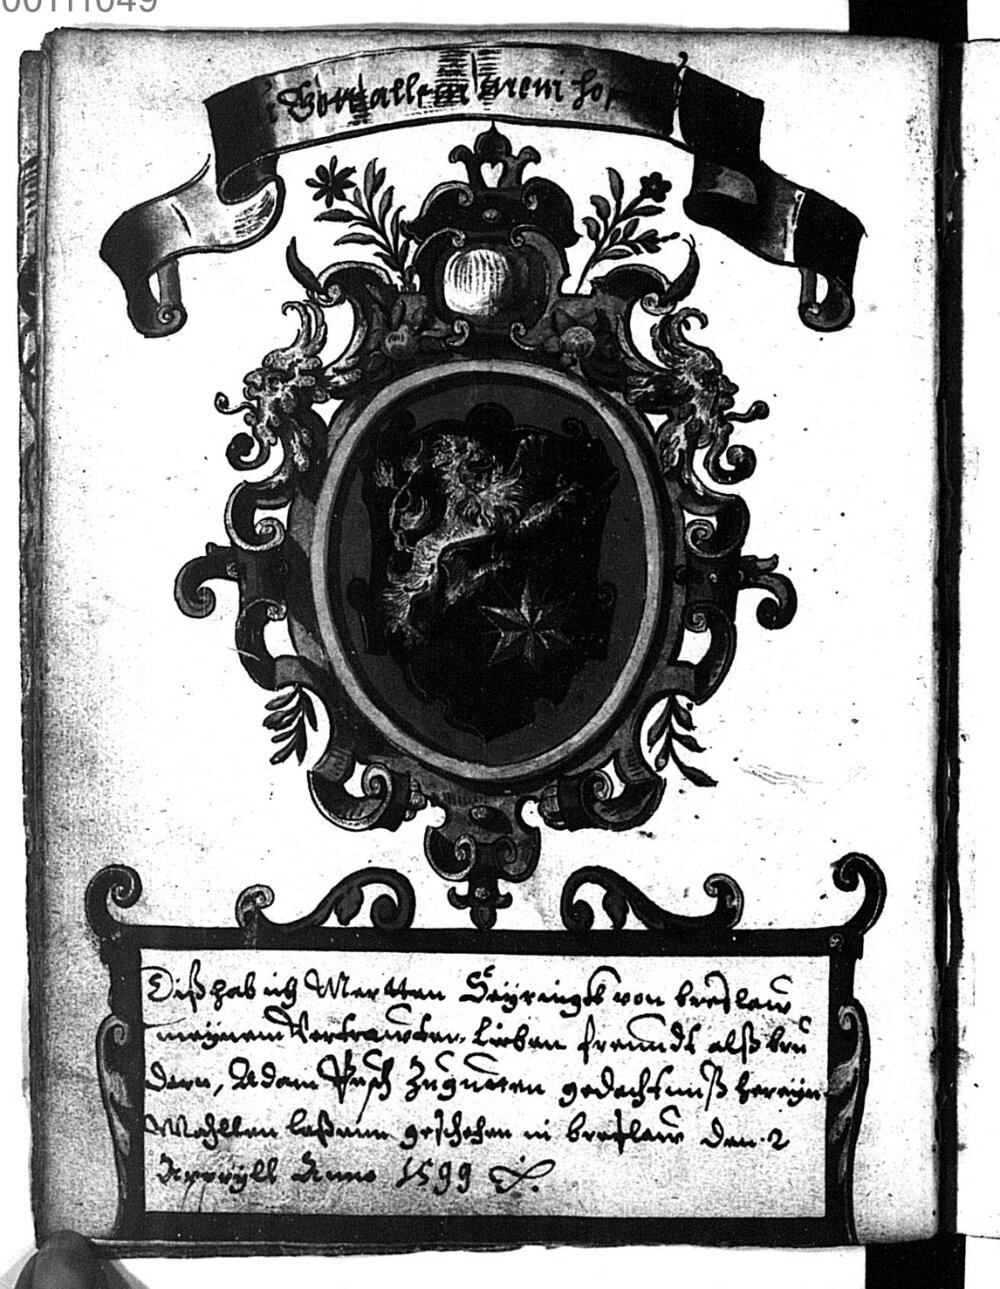 00111049
Von allein mein hof
Diß hab ich Merten Seÿringk von breslaw
meÿnem Vertrawten Lieben freundt alß bru
dern, Adam Pusch Zugutten gedechtnuß hereÿn
Mahllen laßenn geschehen in breslaw den 2
Apprÿll Anno 1599